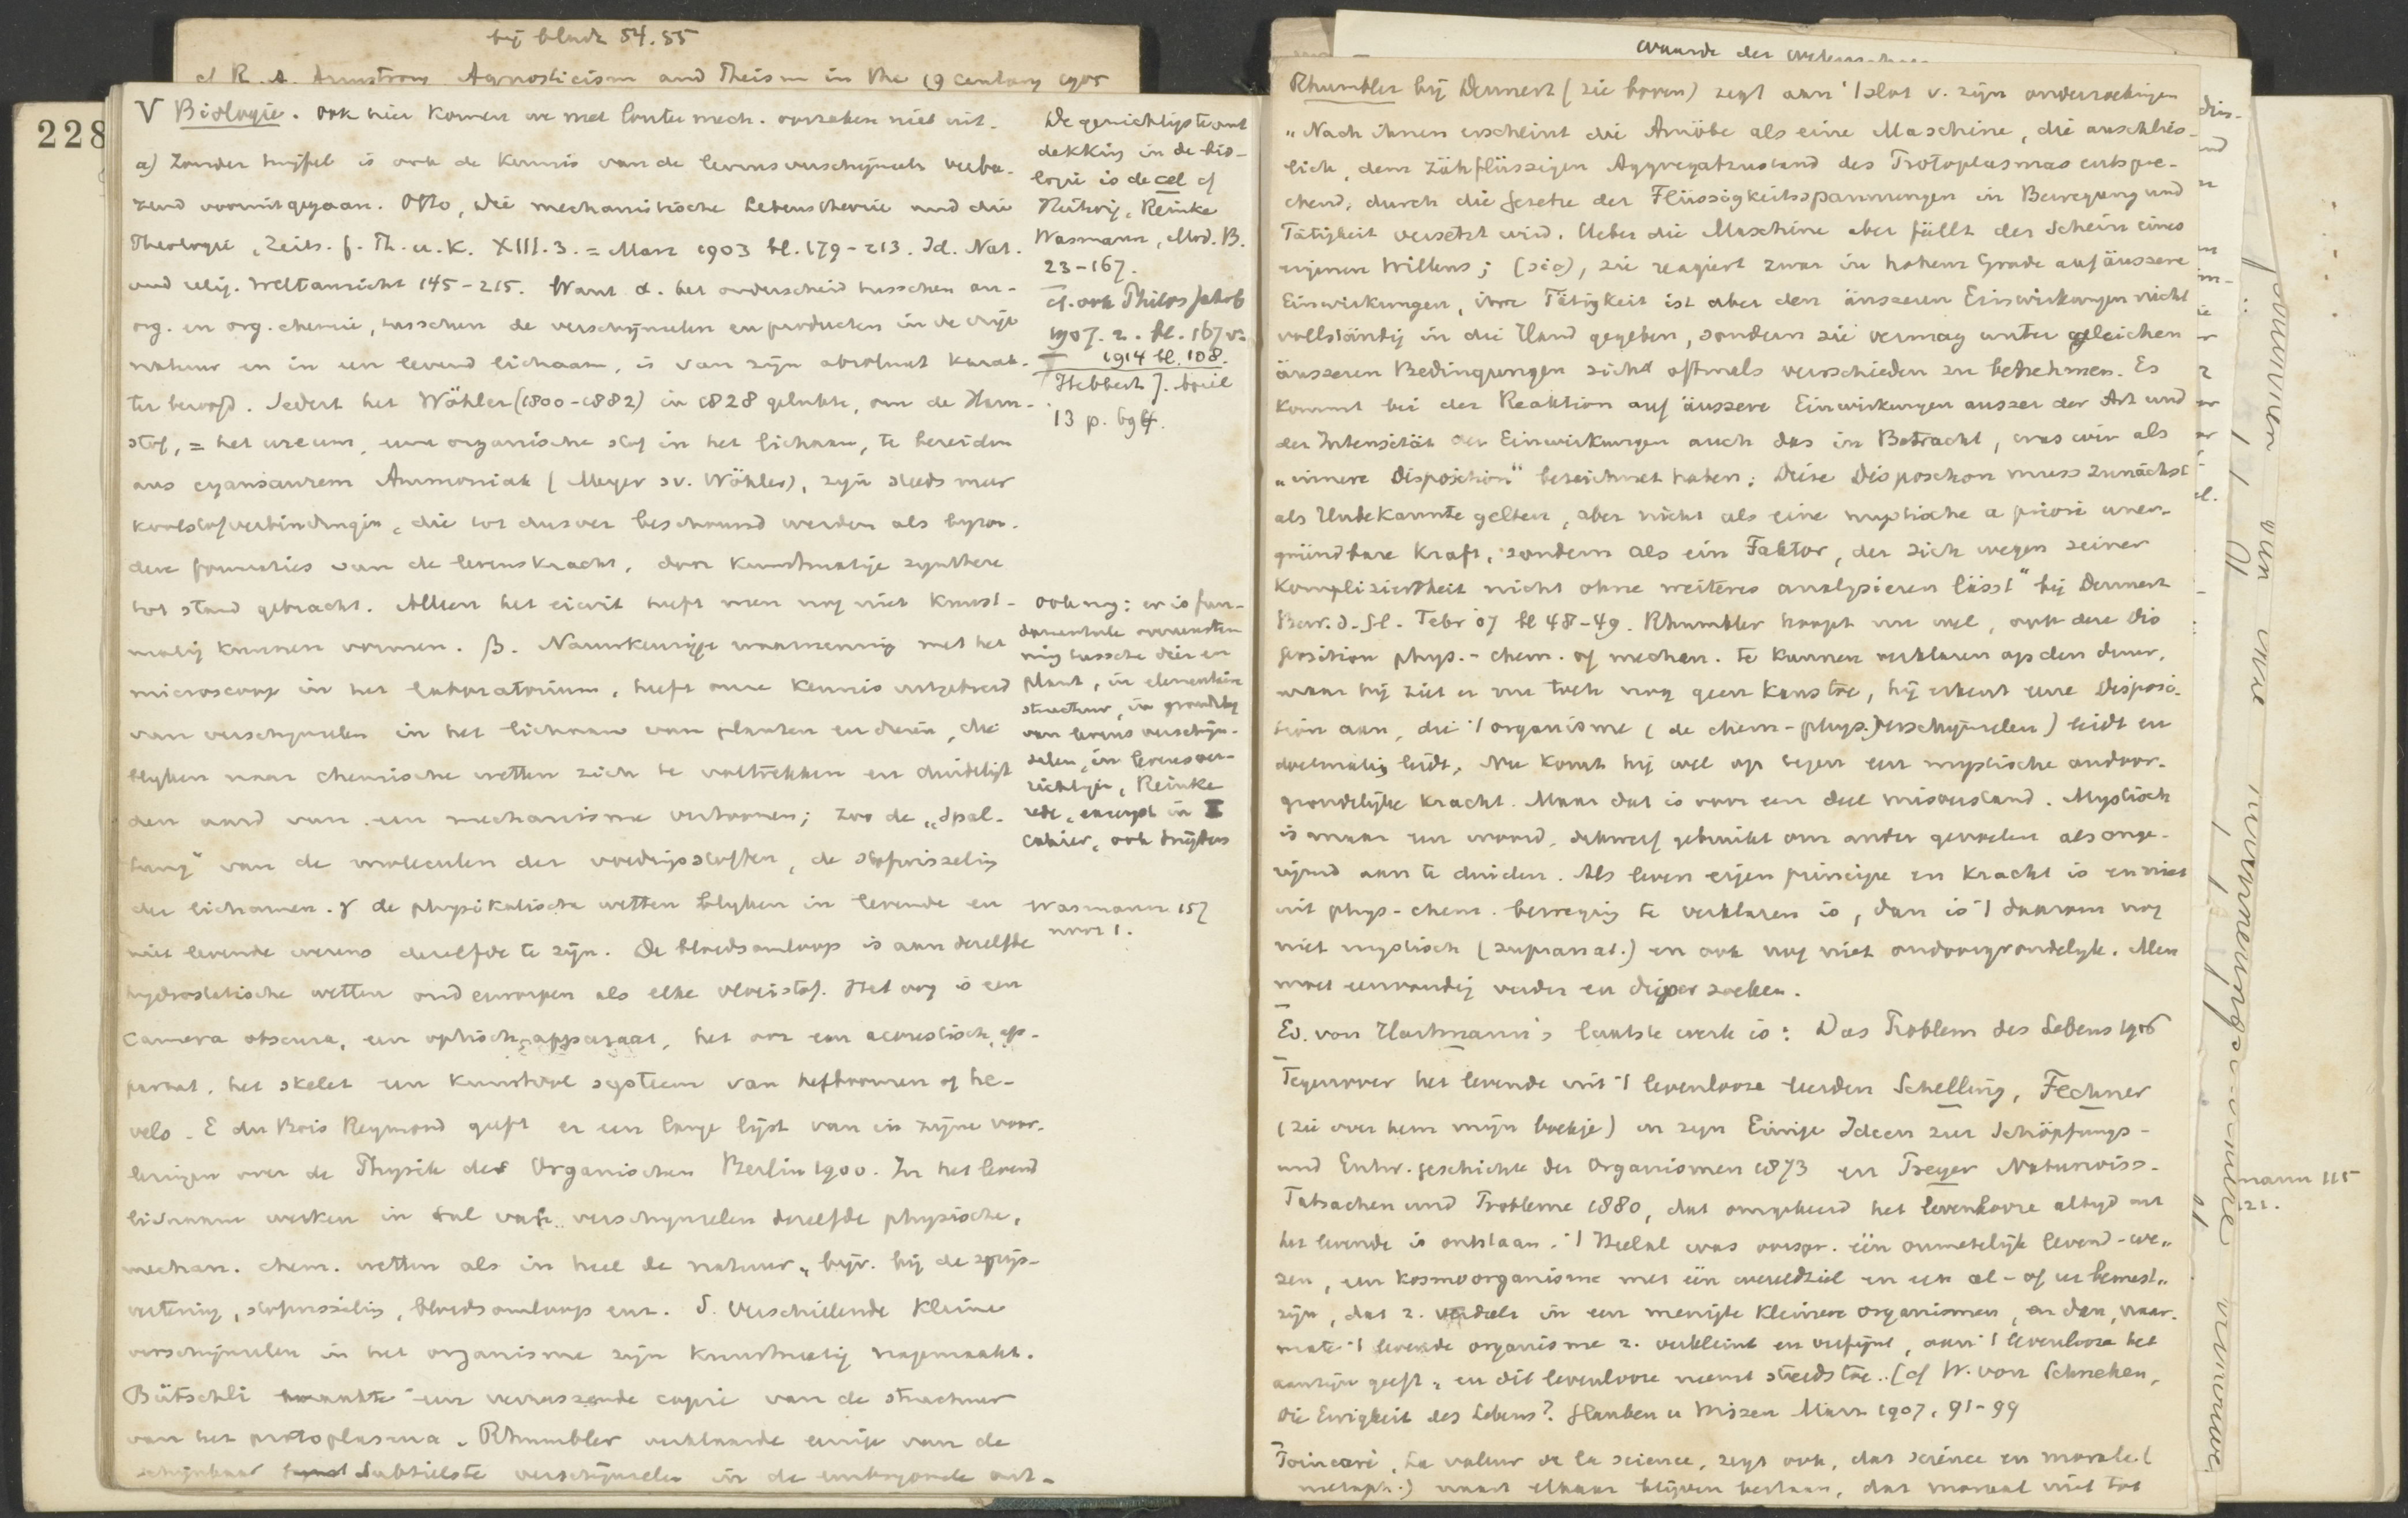 bij bladz 54.55
cf R. A. Armstrong Agnosticism and Theism in the 19 century 1905
228
V Biologie. Ook hier komen we met louter mech. oorzaken niet uit.
a) Zonder twijfel is ook de kennis van de levensverschijnselen verba-
zend vooruitgegaan. Otto, Die mechanistische Lebenstheorie und die
Theologie, Zeits. f. Th. u. K. XIII. 3. = Marz 1903 bl. 179-213. Id. Nat.
und relig. Weltansicht 145-215. Want α. het onderscheid tusschen an-
org. en org. chemie, tusschen de verschijnselen en producten in de vrije
natuur en in een levend lichaam, is van zijn absoluut karak-
ter beroofd. Sedert het Wöhler (1800-1882) in 1828 gelukte, om de Ham-
stof, = het ureum, eene organische stof in het lichaam, te bereiden
aus cyansaurem Ammoniak (Meyer sv. Wöhler), zijn steeds meer
koolstofverbindingen, die tot dusver beschouwd werden als byzon-
dere functies van de levenskracht, door kunstmatige synthese
tot stand gebracht. Alleen het eiwit heeft men nog niet kunst-
matig kunnen vormen. β. Naunkeurige waarneming met het
microscoop in het laboratorium, heeft onze kennis uitgebreid
van verschijnselen in het lichaam van planten en dieren, die
blyken naar chemische wetten zich te voltrekken en duidelijk
den aard van een mechanisme vertoonen; zoo de „Spal-
tung" van de moleculen der voedingsstoffen, de stofwisseling
der lichamen. γ de physikalische wetten blyken in levende en
niet levende wezens dezelfde te zijn. De bloedsomloop is aan dezelfde
hydrostatische wetten onderworpen als elke vloeistof. Het oog is een
camera obscura, een optisch apparaat, het oor een acoustisch ap-
paraat, het skelet een kunstvol systeem van hefboomen of he-
vels. E du Bois Reymond geeft er een lange lijst van in zijne voor-
lezingen over de Physik des Organischen Berlin 1900. In het levend
lichaam werken in tal van verschijnselen dezelfde physische,
mechan. chem. wetten als in heel de natuur, bijv. bij de spijs-
vertering, stofwisseling, bloedsomloop enz. δ. Verschillende kleine
verschijnselen in het organisme zijn kunstmatig nagemaakt.
Bütschli maakte een verrassende copie van de structuur
van het protoplasma. Rhumbler verklaarde eenige van de
schijnbaar subtielste verschijnselen in de embryonale ont-
De gewichtigste ont
dekking in de bio-
logie is de cel cf
Hertwig, Reinke
Wasmann, Mod. B.
23-167.
cf. ook Philos Jahrb
1907. 2. bl. 167 v.
1914 bl. 108.
Hebbert J. April
13 p. 694.
Ook nog: er is fun-
damentele overeenstem
ming tussche dier en
plant, in elementaire
structuur, in grondslag
van levens verschijn-
selen, in levensver-
richtingen, Reinke
rede, excerpt in I
cahier, ook
Wasmann 157
noot 1.
waarde der
Rhumbler bij Dennert (zie boven) zegt aan 't slot v. zijn onderzoekingen
„Nach ihnen erscheint die Amöbe als eine Maschine, die auschlies-
lich, dem zähflüssigen Aggregatzustand des Protoplasmas entspre-
chend, durch die Gesetze der Flüssigkeitsspannungen in Bewegung und
Tätigkeit versetzt wird. Ueber die Maschine aber fällt der Schein eines
eigenen Willens; (sic), sie reagiert zwar in hohem Grade auf äussere
Einwirkungen, ihre Tätigkeit ist aber den äusseren Einwirkungen nicht
vollständig in die Hand gegeben, sondern sie vermag unter gleichen
äusseren Bedingungen sich oftmals verschieden zu benehmen. Es
kommt bei der Reaktion auf äussere Einwirkungen ausser der Art und
der Intensität der Einwirkungen auch das in Betracht, was wir als
„innere Disposition" bezeichnet haben; Diese Disposition muss zunächst
als Unbekannte gelten, aber nicht als eine mystische a priori uner-
gründbare Kraft, sondern als ein Faktor, der sich wegen seiner
Kompliziertheit nicht ohne weiteres analysieren lässt" bij Dennert
Bew. d. Gl. Febr 07 bl 48-49. Rhumbler hoopt nu wel, ook deze Dis
position phys.-chem. of mechan. te kunnen verklaren op den duur,
maar hij ziet er nu toch nog geen kans toe, hij erkent eene Disposi-
tion aan, die 't organisme (de chem-phys. verschijnselen) leidt en
doelmatig leidt. Nu komt hij wel op tegen een mystische ondoor-
grondelijke kracht. Maar dat is voor een deel misverstand. Mystisch
is maar een woord, dikwerf gebruikt om ander gevoelen als onge-
rijmd aan te duiden. Als leven eigen principe en kracht is en niet
uit phys-chem. beweging te verklaren is, dan is 't daarom nog
niet mystisch (supranat.) en ook nog niet ondoorgrondelyk. Men
moet eenvoudig verder en dieper zoeken.
Ed. von Hartmann's laatste werk is: Das Problem des Lebens 1906
Tegenover het levende uit 't levenlooze leerden Schelling, Fechner
(zie over hem mijn boekje) in zijn Einige Ideen zur Schöpfungs-
und Entw. geschichte der Organismen 1873 en Preyer Naturwiss.
Tatsachen und Probleme 1880, dat omgekeerd het levenlooze altyd uit
het levende is ontstaan. 't Heelal was oorspr. één onmetelijk levend-we-
zen, een kosmoorganisme met één wereldziel en een al- of
zijn, dat z. verdeelt in een menigte kleinere organismen, en dan, naar-
mate 't levende organisme z. verkleint en verfijnt, aan 't levenlooze het
aanzijn geeft, en dit levenlooze neemt steeds toe. (cf W. von Schnehen,
Die Ewigkeit des Lebens? Glauben u Wissen März 1907, 91-99
Poincaré, La valeur de la science, zegt ook, dat science en morale (
metaph.) naast elkaar blijven bestaan, dat moraal niet tot
mann 115
121.